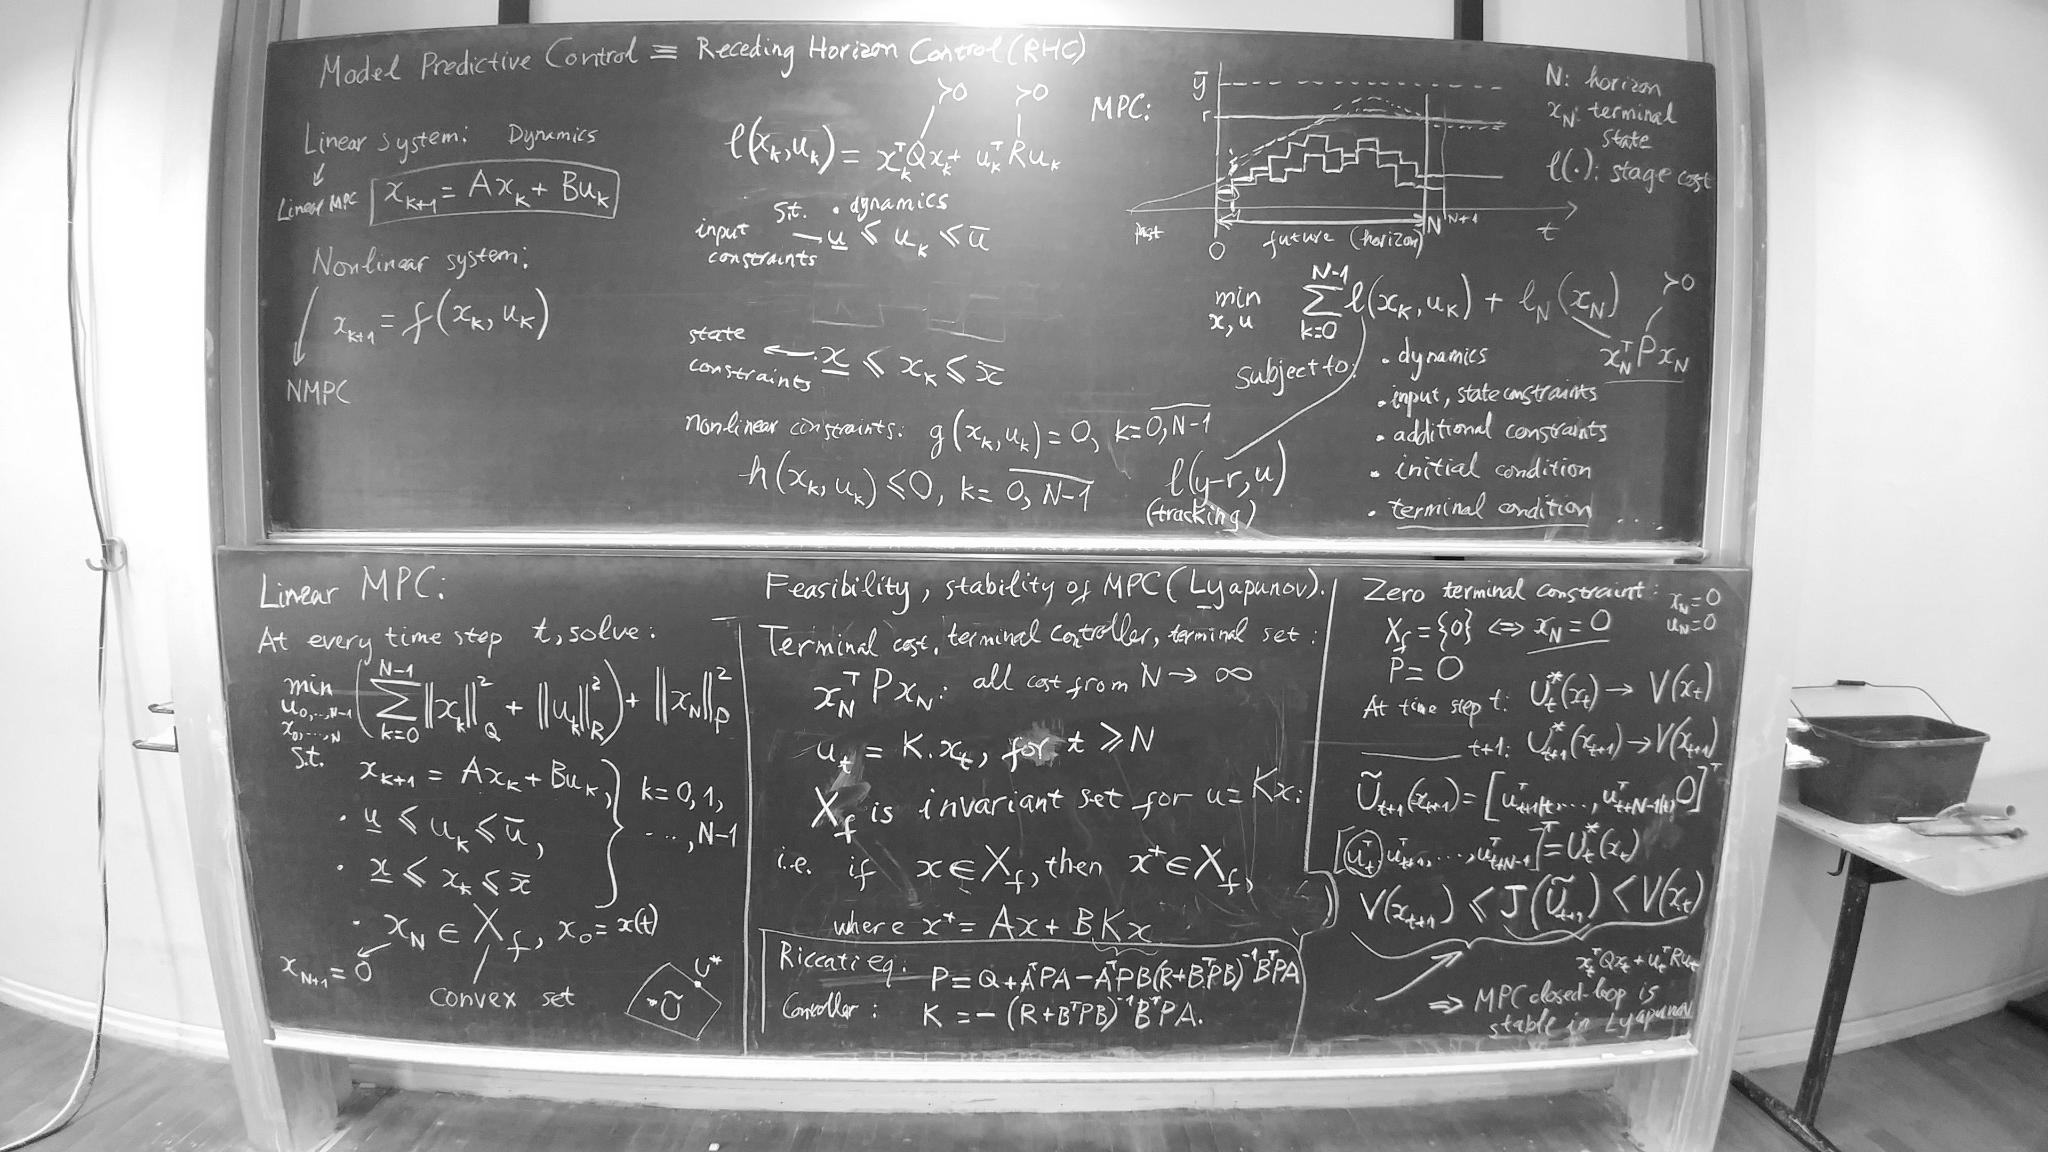 Model Predictive Control ≡ Receding Horizon Control (RHC)
Linear system: Dynamics
Linear MPC
x_{k+1} = Ax_k + Bu_k
Nonlinear system:
x_{k+1} = f(x_k, u_k)
NMPC
>0 >0
l(x_k, u_k) = x_k^T Q x_k + u_k^T R u_k
s.t. • dynamics
input constraints
u̲ ≤ u_k ≤ ū
state constraints
• x̲ ≤ x_k ≤ x̄
nonlinear constraints: g(x_k, u_k) = 0, k = \overline{0, N-1}
h(x_k, u_k) ≤ 0, k = \overline{0, N-1}
MPC:
ȳ
r
past
0
future (horizon)
N
N+1
t
N: horizon
x_N: terminal
state
l(·): stage cost
min x, u ∑_{k=0}^{N-1} l(x_k, u_k) + l_N(x_N)
>0
x_N^T P x_N
subject to:
• dynamics
• input, state constraints
• additional constraints
• initial condition
• terminal condition ....
l(y-r, u)
(tracking)
Linear MPC:
At every time step t, solve:
min u_{0,...,N-1} x_{0,...,N} (∑_{k=0}^{N-1} ||x_k||²_Q + ||u_k||²_R) + ||x_N||²_P
s.t.
x_{k+1} = Ax_k + Bu_k,
• u̲ ≤ u_k ≤ ū,
• x̲ ≤ x_k ≤ x̄
k = 0, 1,
..., N-1
• x_N ∈ X_f, x_0 = x(t)
x_{N+1} = 0
convex set
U*
Ũ
Feasibility, stability of MPC (Lyapunov).
Terminal cost, terminal controller, terminal set:
x_N^T P x_N: all cost from N → ∞
u_t = K.x_t, for t ≥ N
X_f is invariant set for u = Kx:
i.e. if x ∈ X_f, then x⁺ ∈ X_f,
where x⁺ = Ax + BKx
Riccati eq: P = Q + A^T P A - A^T P B (R + B^T P B)^{-1} B^T P A
Controller: K = - (R + B^T P B)^{-1} B^T P A.
Zero terminal constraint: x_N = 0
u_N = 0
X_f = {0} ⇔ x_N = 0
P = 0
At time step t: U_t^*(x_t) → V(x_t)
t+1: U_{t+1}^*(x_{t+1}) → V(x_{t+1})
Ũ_{t+1}(x_{t+1}) = [u^T_{t+1|t}, ..., u^T_{t+N-1|t}, 0]^T
[u_t^T, u_{t+1}^T, ..., u_{t+N-1}^T]^T = U_t^*(x_t)
V(x_{t+1}) ≤ J(Ũ_{t+1}) < V(x_t)
x_t^T Q x_t + u_t^T R u_t
⇒ MPC closed-loop is
stable in Lyapunov